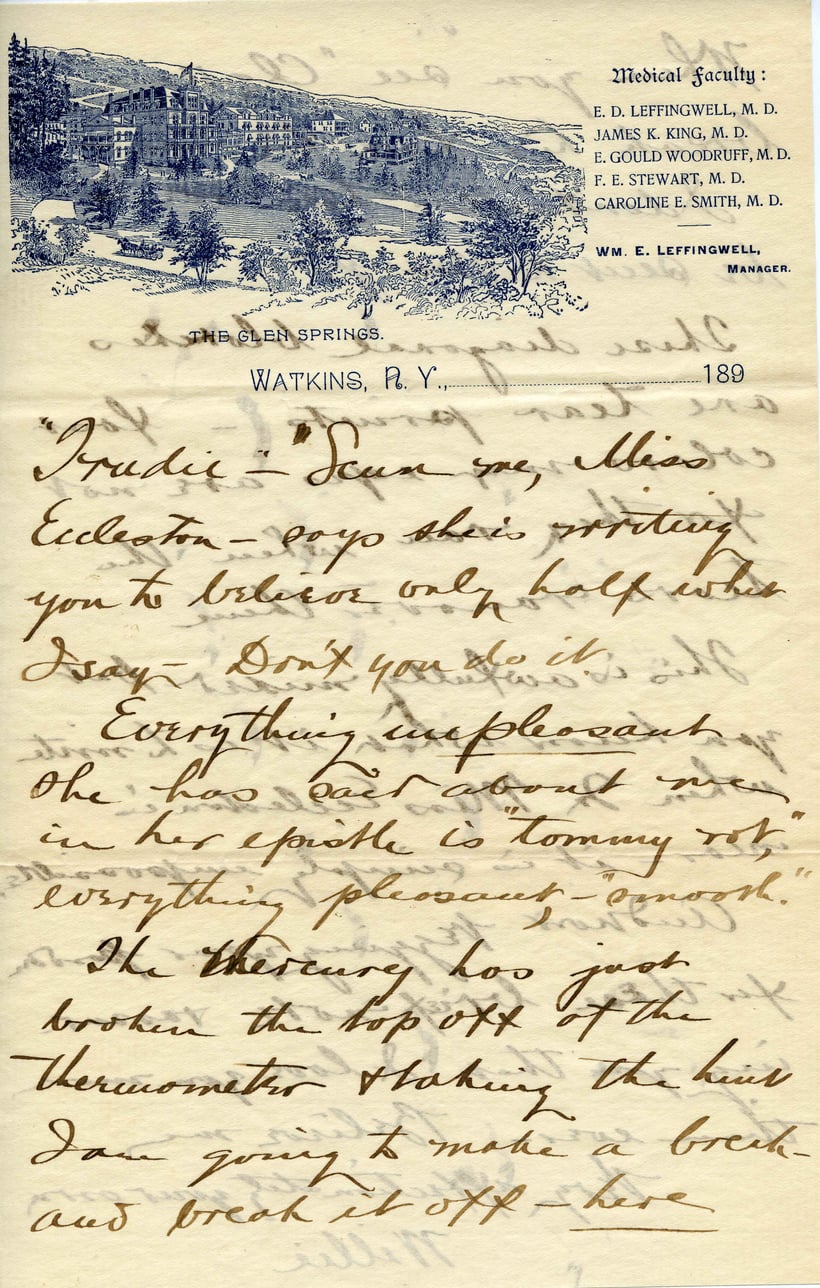 Medical Faculty:
E. D. LEFFINGWELL, M. D.
JAMES K. KING, M. D.
E. GOULD WOODRUFF, M. D.
F. E. STEWART, M. D.
CAROLINE E. SMITH, M. D.
WM. E. LEFFINGWELL,
MANAGER.
THE GLEN SPRINGS.
WATKINS, N. Y., 189
"Trudie" – "Scuse me, Miss
Eccleston – says she is writing
you to believe only half what
I say – Don't you do it.
Everything unpleasant
she has said about me
in her epistle is "tommy rot,"
everything pleasant – "smooth."
The Mercury has just
broken the top off of the
thermometer & taking the hint
I am going to make a break –
and break it off – here